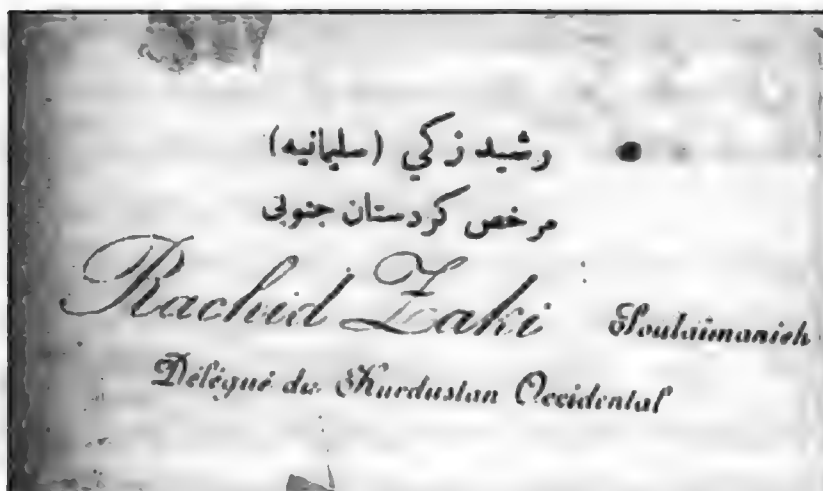 رشيد زكي (سليمانيه)
مرخص كردستان جنوبى
Rachid Zaki Soulaïmanieh
Délégué du Kurdustan Occidental